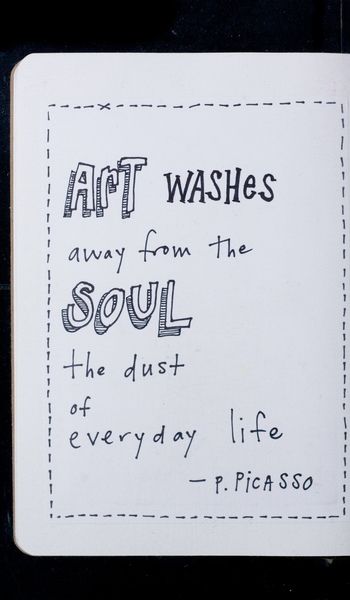 ArT WASHes
away from the
SOUL
the dust
of
everyday life
— P. PiCASSO